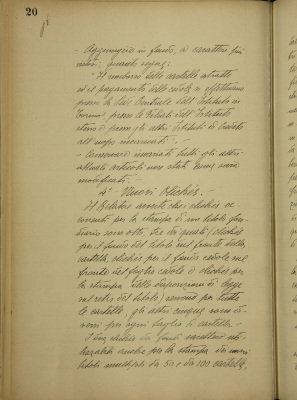 20
- Aggiungere in fondo, a caratteri più
quanto segue:
"Il rimborso delle cartelle estratte
ed il pagamento delle cedole si effettuano
presso la Sede Centrale dell'Istituto in
Torino presso le Filiali dell'Istituto
stesso e presso gli altri Istituti di Credito
all'uopo incaricati". -
- Conservare invariati tutti gli altri
attuali articoli non stati come sopra
modificati. -
4° - Nuovi clichés. -
Il Relatore avverte che i clichés oc
correnti per la stampa di un titolo fon
diario sono otto, tre dei quali (clichés
per il fondo del titolo nel fronte della
cartella, clichés per il fondo cedole nel
fronte del foglio cedole e clichés per
la stampa delle disposizioni di legge
nel retro del titolo) servono per tutte
le cartelle, gli altri cinque sono di
versi per ogni taglio di cartella. -
I tre clichés di fondo saranno uti
lizzabili anche per la stampa dei nuovi
titoli multipli da 50 e da 100 cartelle,